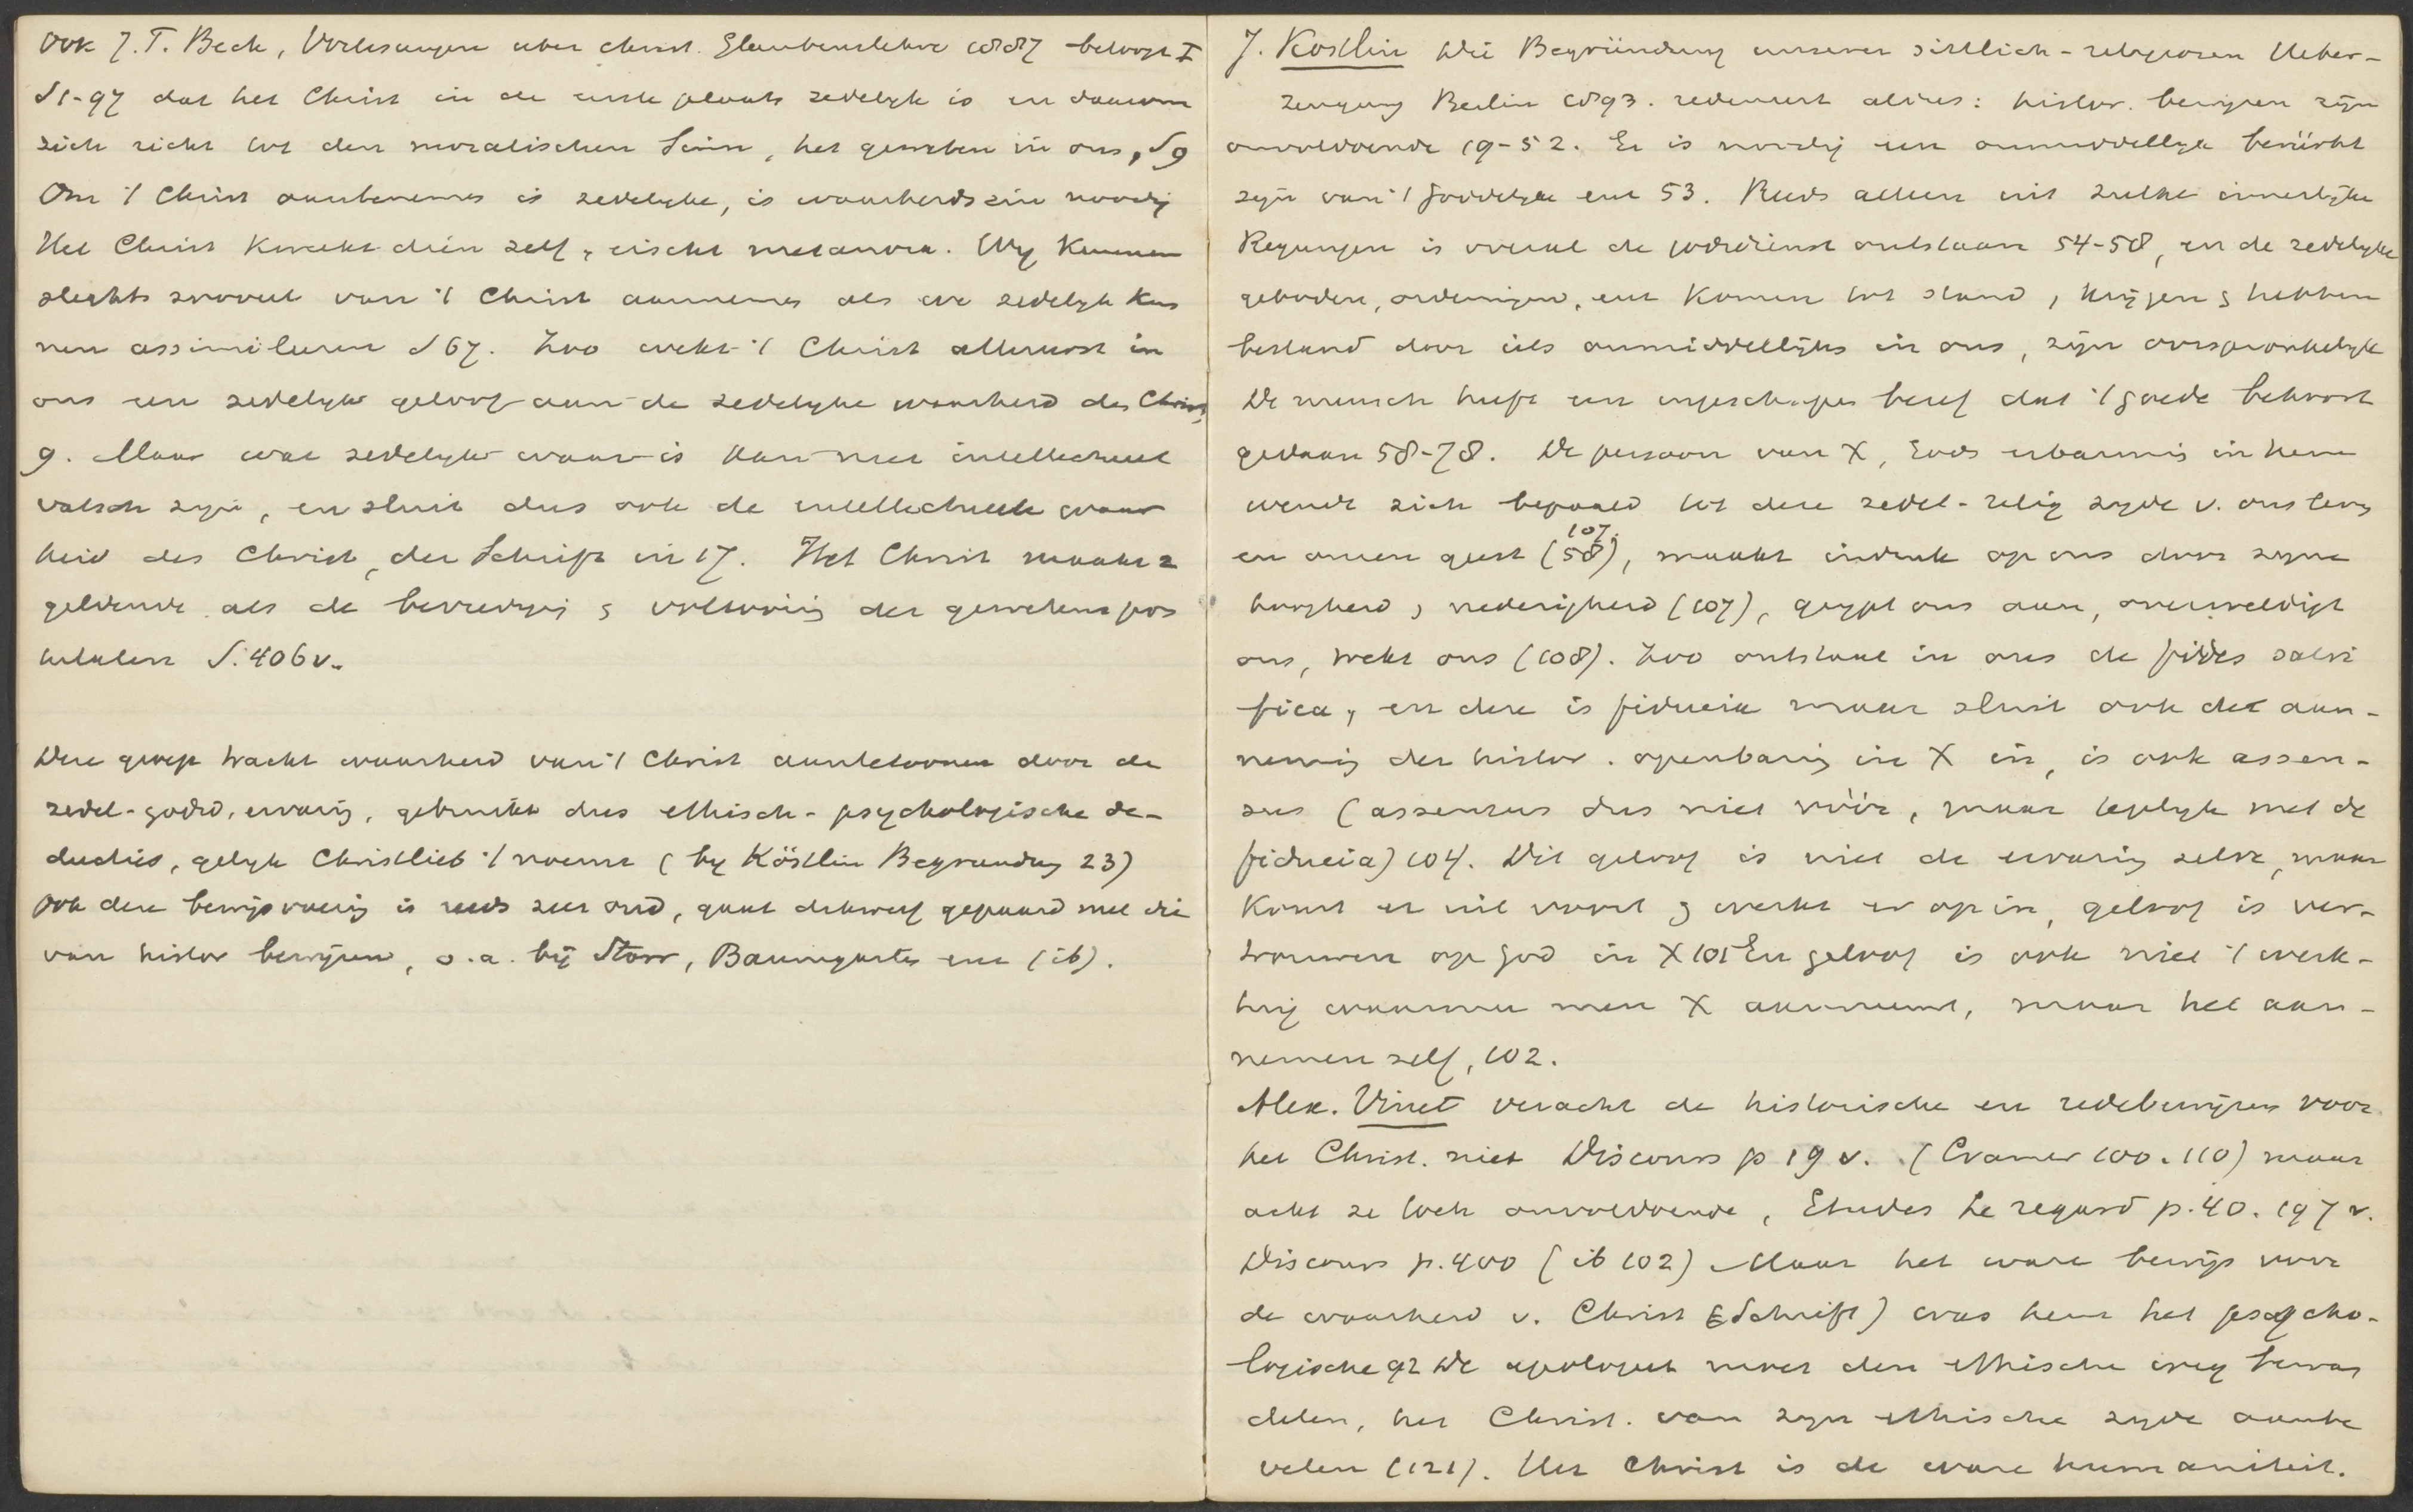 Ook J.T. Beck, Vorlesungen uber christ. Glaubenslehre 1887 betoogt I
S1-97 dat het Christ in de eerste plaats zedelyk is en daarom
zich richt tot den moralischen Sinn, het geweten in ons, S9
Om 't Christ aantenemen is zedelyke, is waarheidszin noodig
Het Christ kweekt dien zelf, eischt metanoia. Wy kunnen
slechts zooveel van 't Christ aannemen als we zedelyk kun
nen assimileeren S67. Zoo wekt 't Christ allereerst in
ons een zedelyk geloof aan de zedelyke waarheid des Christ,
9. Maar wat zedelyk waar is kan niet intellectueel
valsch zyn, en sluit dus ook de intellectueele waar
heid des Christ, der Schrift in 17. Het Christ maakt z
geldende als de bevrediging & voltooiing der gewetenspos
tulaten S.406v.
Deze groep tracht waarheid van 't Christ aantetoonen door de
zedel-godsd. ervaring, gebruikt dus ethisch-psychologische de-
ductie, gelyk Christlieb 't noemt (by Köstlin Begrundung 23)
Ook deze bewijsvoering is reeds zeer oud, gaat dikwerf gepaard met die
van histor bewijzen, o.a. bij Storr, Baumgarten enz (ib).
J. Kostlin Die Begründung unserer sittlich-religiosen Ueber-
zeugung Berlin 1893. redeneert aldus: histor. bewijzen zijn
onvoldoende 19-52. Er is noodig een onmiddellyk berührt
zyn van 't Goddelyke enz 53. Reeds alleen uit zulke innerlijke
Regungen is overal de godsdienst ontstaan 54-58, en de zedelyke
geboden, ordeningen, enz komen tot stand, krijgen & hebben
bestand door iets onmiddellijks in ons, zijn oorspronkelyk
De mensch heeft een ingeschapen besef dat 't goede behoort
gedaan 58-78. De persoon van X, Gods erbarmis in hem
wendt zich bepaald tot deze zedel-relig zyde v. ons leven
107.
en onzen geest (58), maakt indruk op ons door zyne
hoogheid, nederigheid (107), grypt ons aan, overweldigt
ons, trekt ons (108). Zoo ontstaat in ons de fides salvi
fica, en deze is fiducia maar sluit ook de aan-
neming der histor. openbaring in X in, is ook assen-
sus (assensus dus niet vóór, maar tegelyk met de
fiducia) 104. Dit geloof is niet de ervaring zelve, maar
komt er uit voort & werkt er op in, geloof is ver-
trouwen op God in X 101 En geloof is ook niet 't werk-
tuig waarmee men X aanneemt, maar het aan-
nemen zelf, 102.
Alex. Vinet veracht de historische en redebewijzen voor
het Christ. niet Discours p 19 v. (Cramer 100.110) maar
acht ze toch onvoldoende, Etudes Le regard p.40. 197 v.
Discours p.400 (ib 102) Maar het ware bewijs voor
de waarheid v. Christ (& Schrift) was hem het psycho-
logische 92 De apologeet moet den ethische weg bewan
delen, het Christ. van zyn ethische zyde aanbe
velen (121). Het Christ is de ware humaniteit.